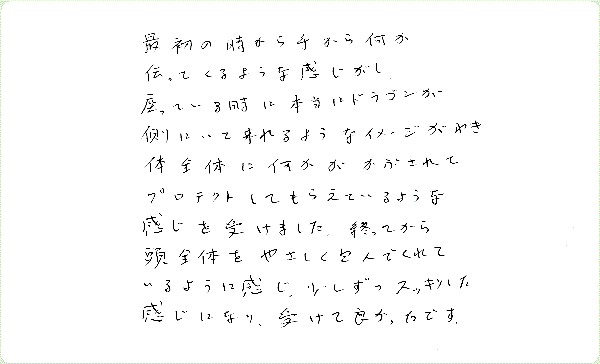 最初の時から手から何か
伝ってくるような感じがし
座っている時に本当にドラゴンが
側にいて来れるようなイメージがわき
体全体に何かが かぶされて
プロテクトしてもらえているような
感じを受けました。終ってから
頭全体をやさしく包んでくれて
いるように感じ、少しずつスッキリした
感じになり、受けて良かったです。